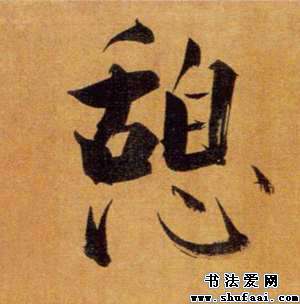 憩
书法爱网
www.shufaai.com